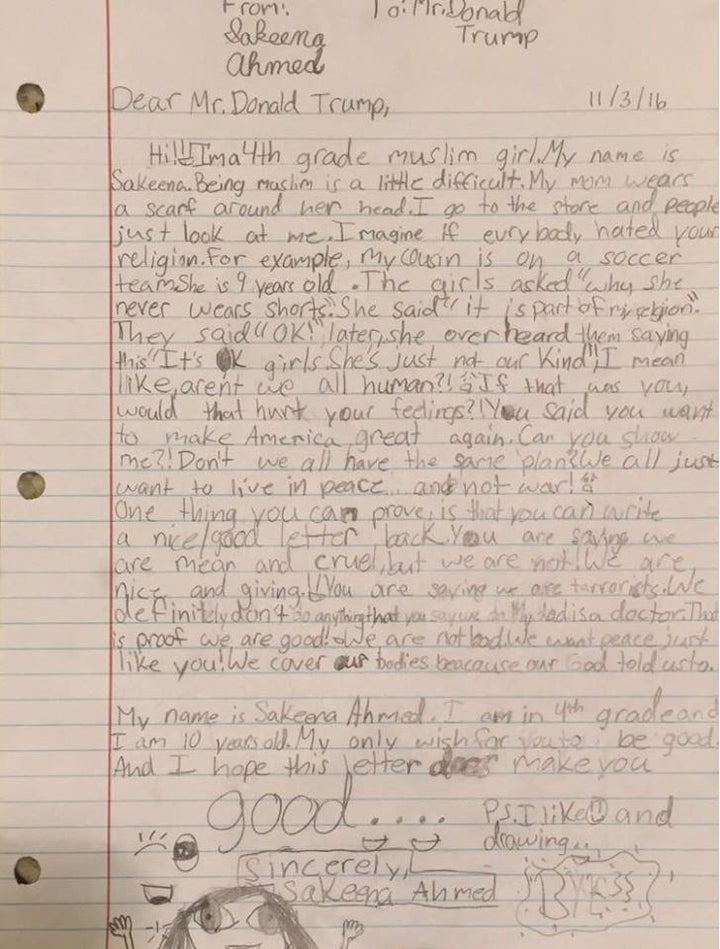 From: To: Mr. Donald
Sakeena Trump
Ahmed
Dear Mr. Donald Trump, 11/3/16
Hi!! I'm a 4th grade muslim girl. My name is
Sakeena. Being muslim is a little difficult. My mom wears
a scarf around her head. I go to the store and people
just look at me. Imagine if eurybody hated your
religion. For example, my cousin is on a soccer
team. She is 9 years old. The girls asked "why she
never wears shorts." She said "it is part of my religion".
They said "OK!" later, she over heard them saying
this "It's OK girls. She's just not our kind", I mean
like, arent we all human?! If that was you,
would that hurt your feelings?! You said you want
to make America great again. Can you show
me?! Don't we all have the same plan? We all just
want to live in peace... and not war!
One thing you can prove, is that you can write
a nice/good letter back. You are saying we
are mean and cruel, but we are not! We are
nice and giving. !! You are saying we are tarrorists. We
definitely don't do anything that you say we do. My dad is a doctor. That
is proof we are good! We are not bad. We want peace just
like you! We cover our bodies beacause our God told us to.
My name is Sakeena Ahmed. I am in 4th grade and
I am 10 years old. My only wish for you to be good.
And I hope this letter does make you
good.... P.S. I like and
drawing..
Sincerely,
Sakeena Ahmed